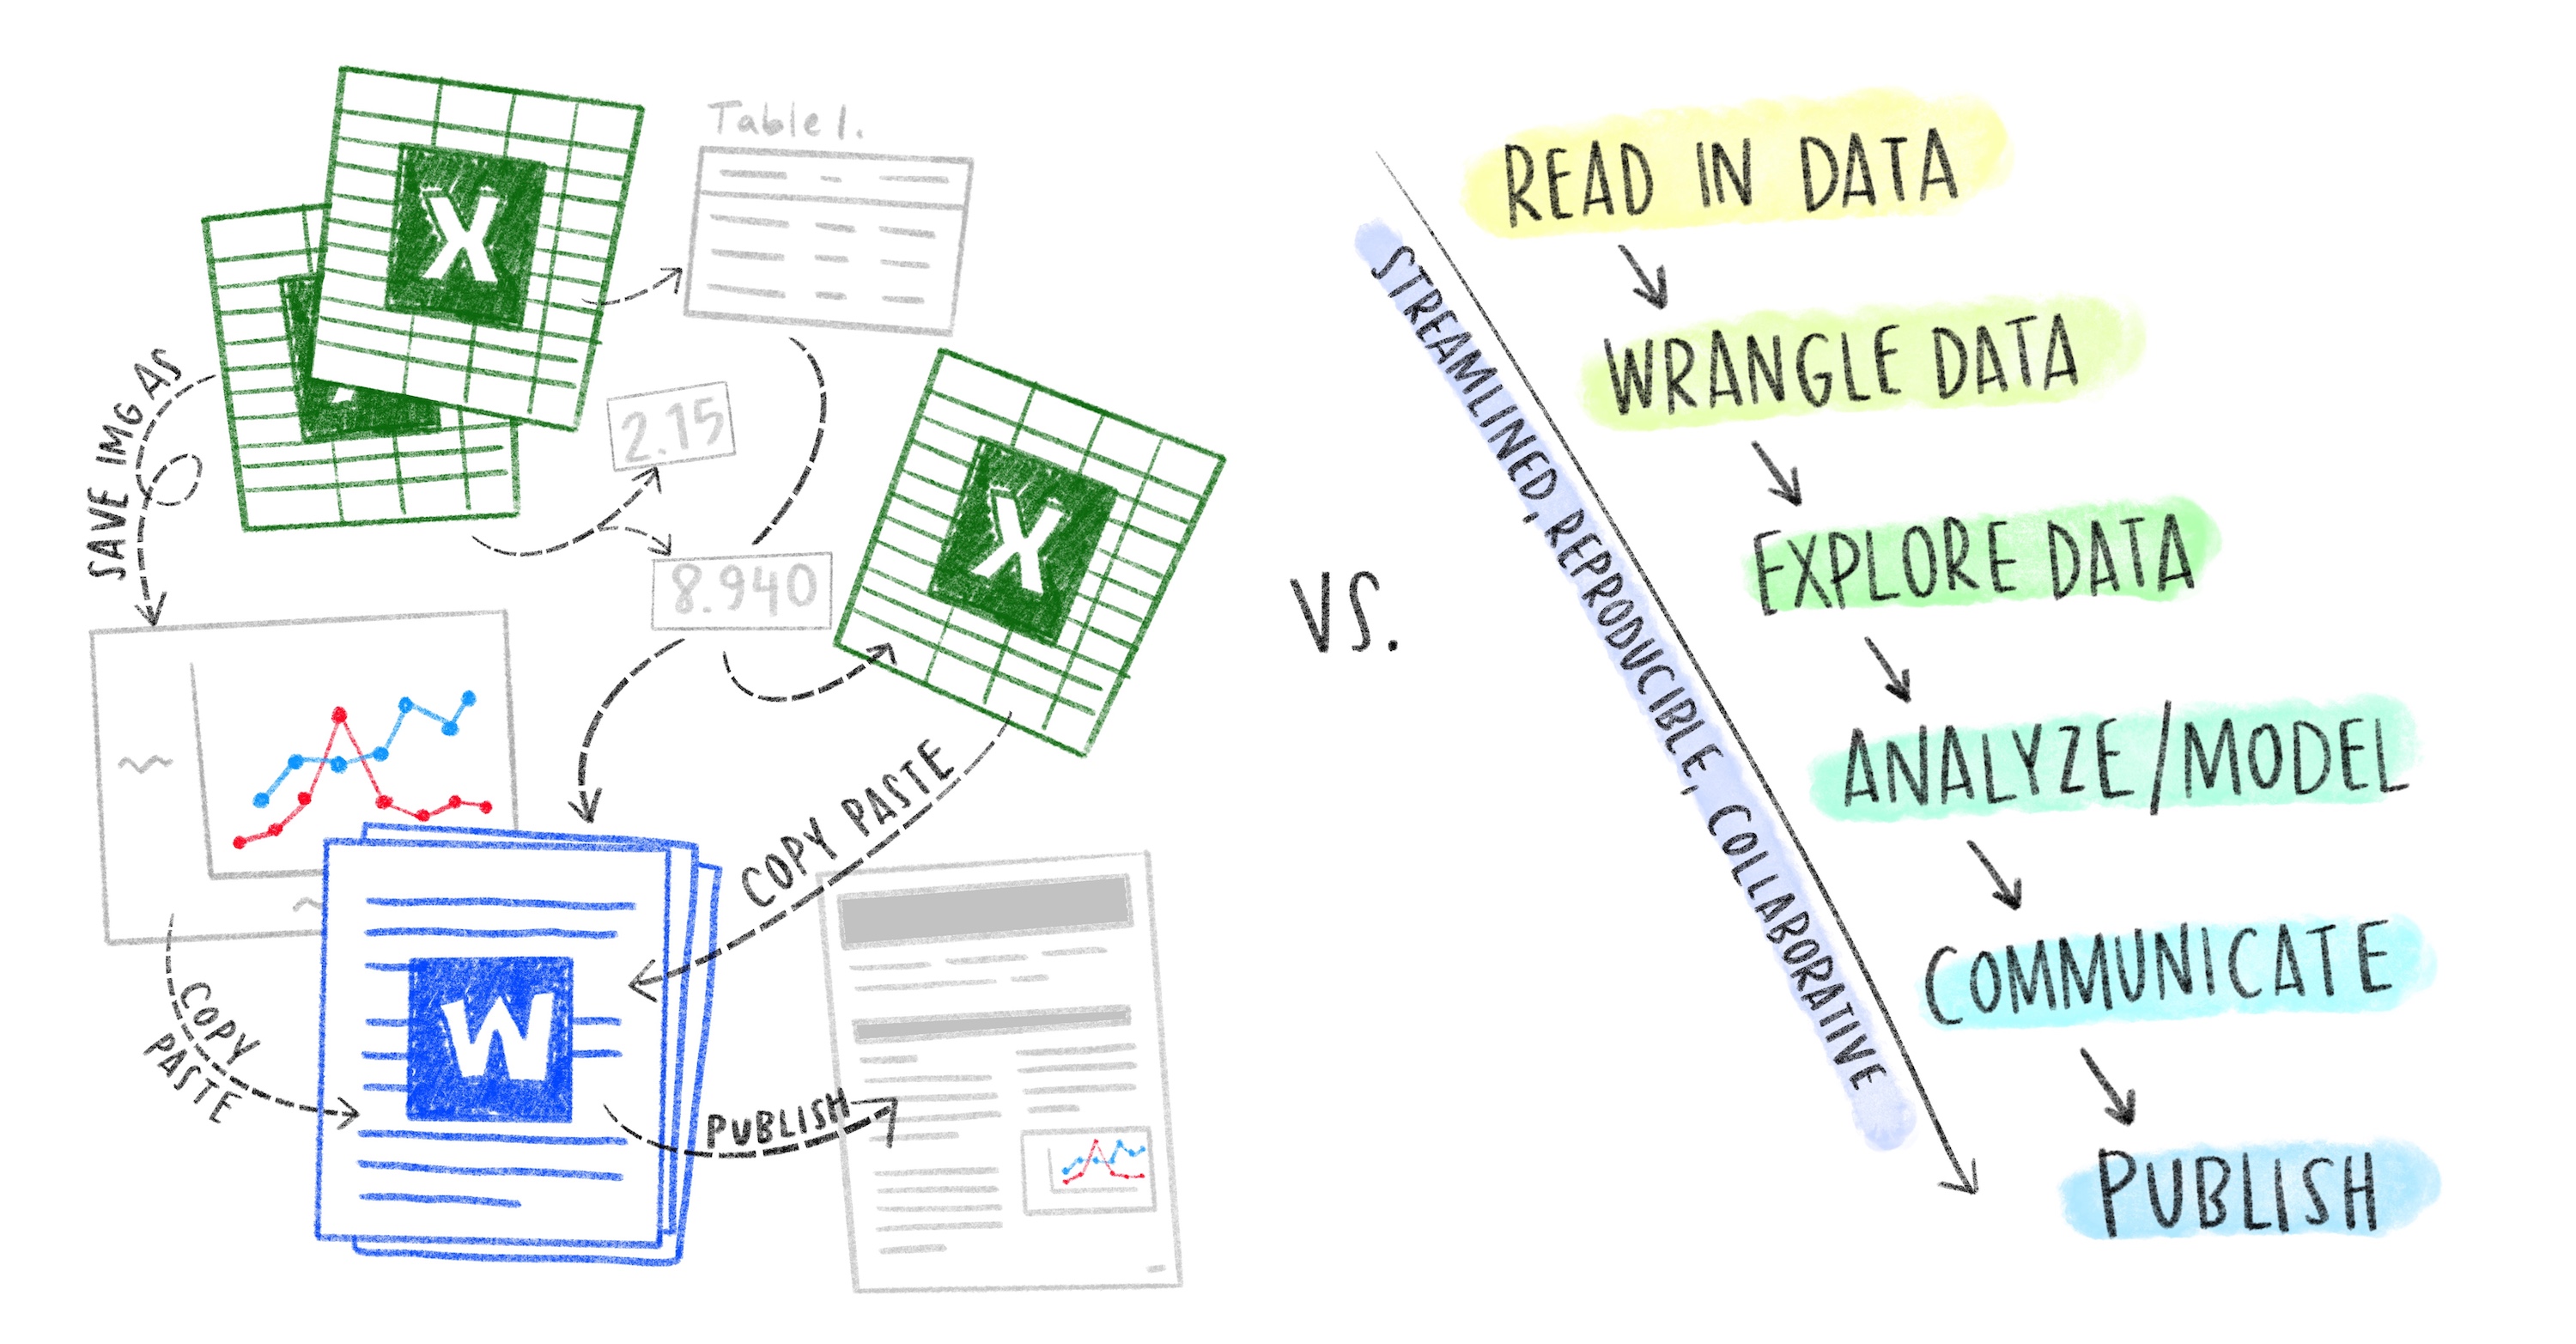 Table 1.
X
SAVE IMG AS
2.15
8.940
X
COPY PASTE
W
COPY
PASTE
PUBLISH
VS.
STREAMLINED, REPRODUCIBLE, COLLABORATIVE
READ IN DATA
WRANGLE DATA
EXPLORE DATA
ANALYZE/MODEL
COMMUNICATE
PUBLISH